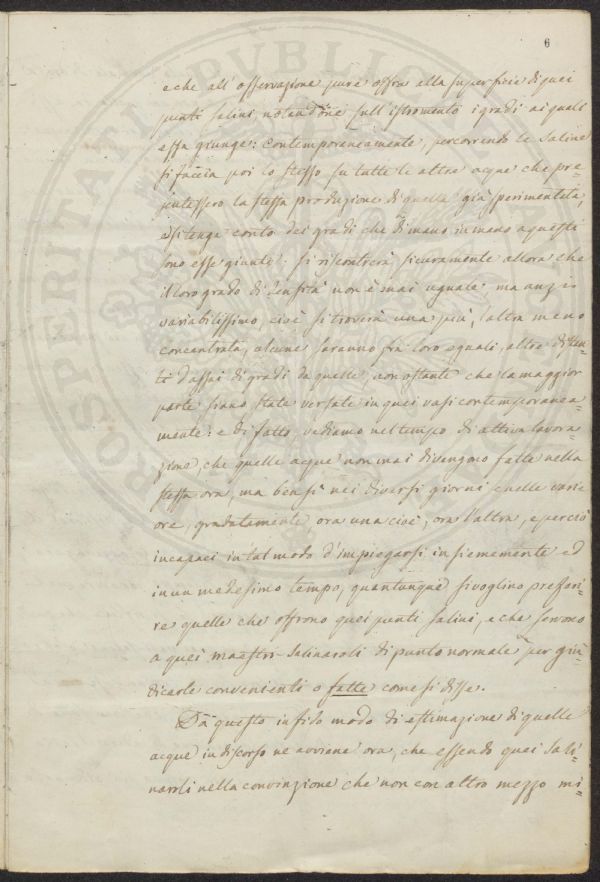 6
e che all'osservazione pure offra alla superficie di quei
punti salini notandone sull'istromento i gradi ai quali
essa giunge: contemporaneamente, percorrendo le saline
si faccia poi lo stesso su tutte le altre acque che pre=
sentassero la stessa produzione di quella già sperimentata,
e si tenga conto dei gradi che di mano in mano a questi
sono esse giunte: si riscontrerà sicuramente allora che
il loro grado di densità non è mai uguale ma anzi
variabilissimo, cioè si troverà una più, l'altra meno
concentrata, alcune saranno fra loro eguali, altre distan=
ti d'assai di gradi da quelle, non ostante che la maggior
parte siano state versate in quei vasi contemporanea=
mente: e di fatto, vediamo nel tempo di attiva lavora=
zione che quelle acque non mai divengono fatte nella
stessa ora, ma bensì nei diversi giorni e nelle varie
ore, gradatamente, ora una cioè, ora l'altra, e perciò
incapaci in tal modo d'impiegarsi insiememente ed
in un medesimo tempo, quantunque si voglino preferi=
re quelle che offrono quei punti salini, e che servono
a quei maestri-Salinaroli di punto normale per giu=
dicarle convenienti o fatte come si disse.
Da questo in filo modo di estimazione di quelle
acque in discorso ne avviene ora, che essendo quei Sali=
naroli nella convinzione che non con altro mezzo mi=